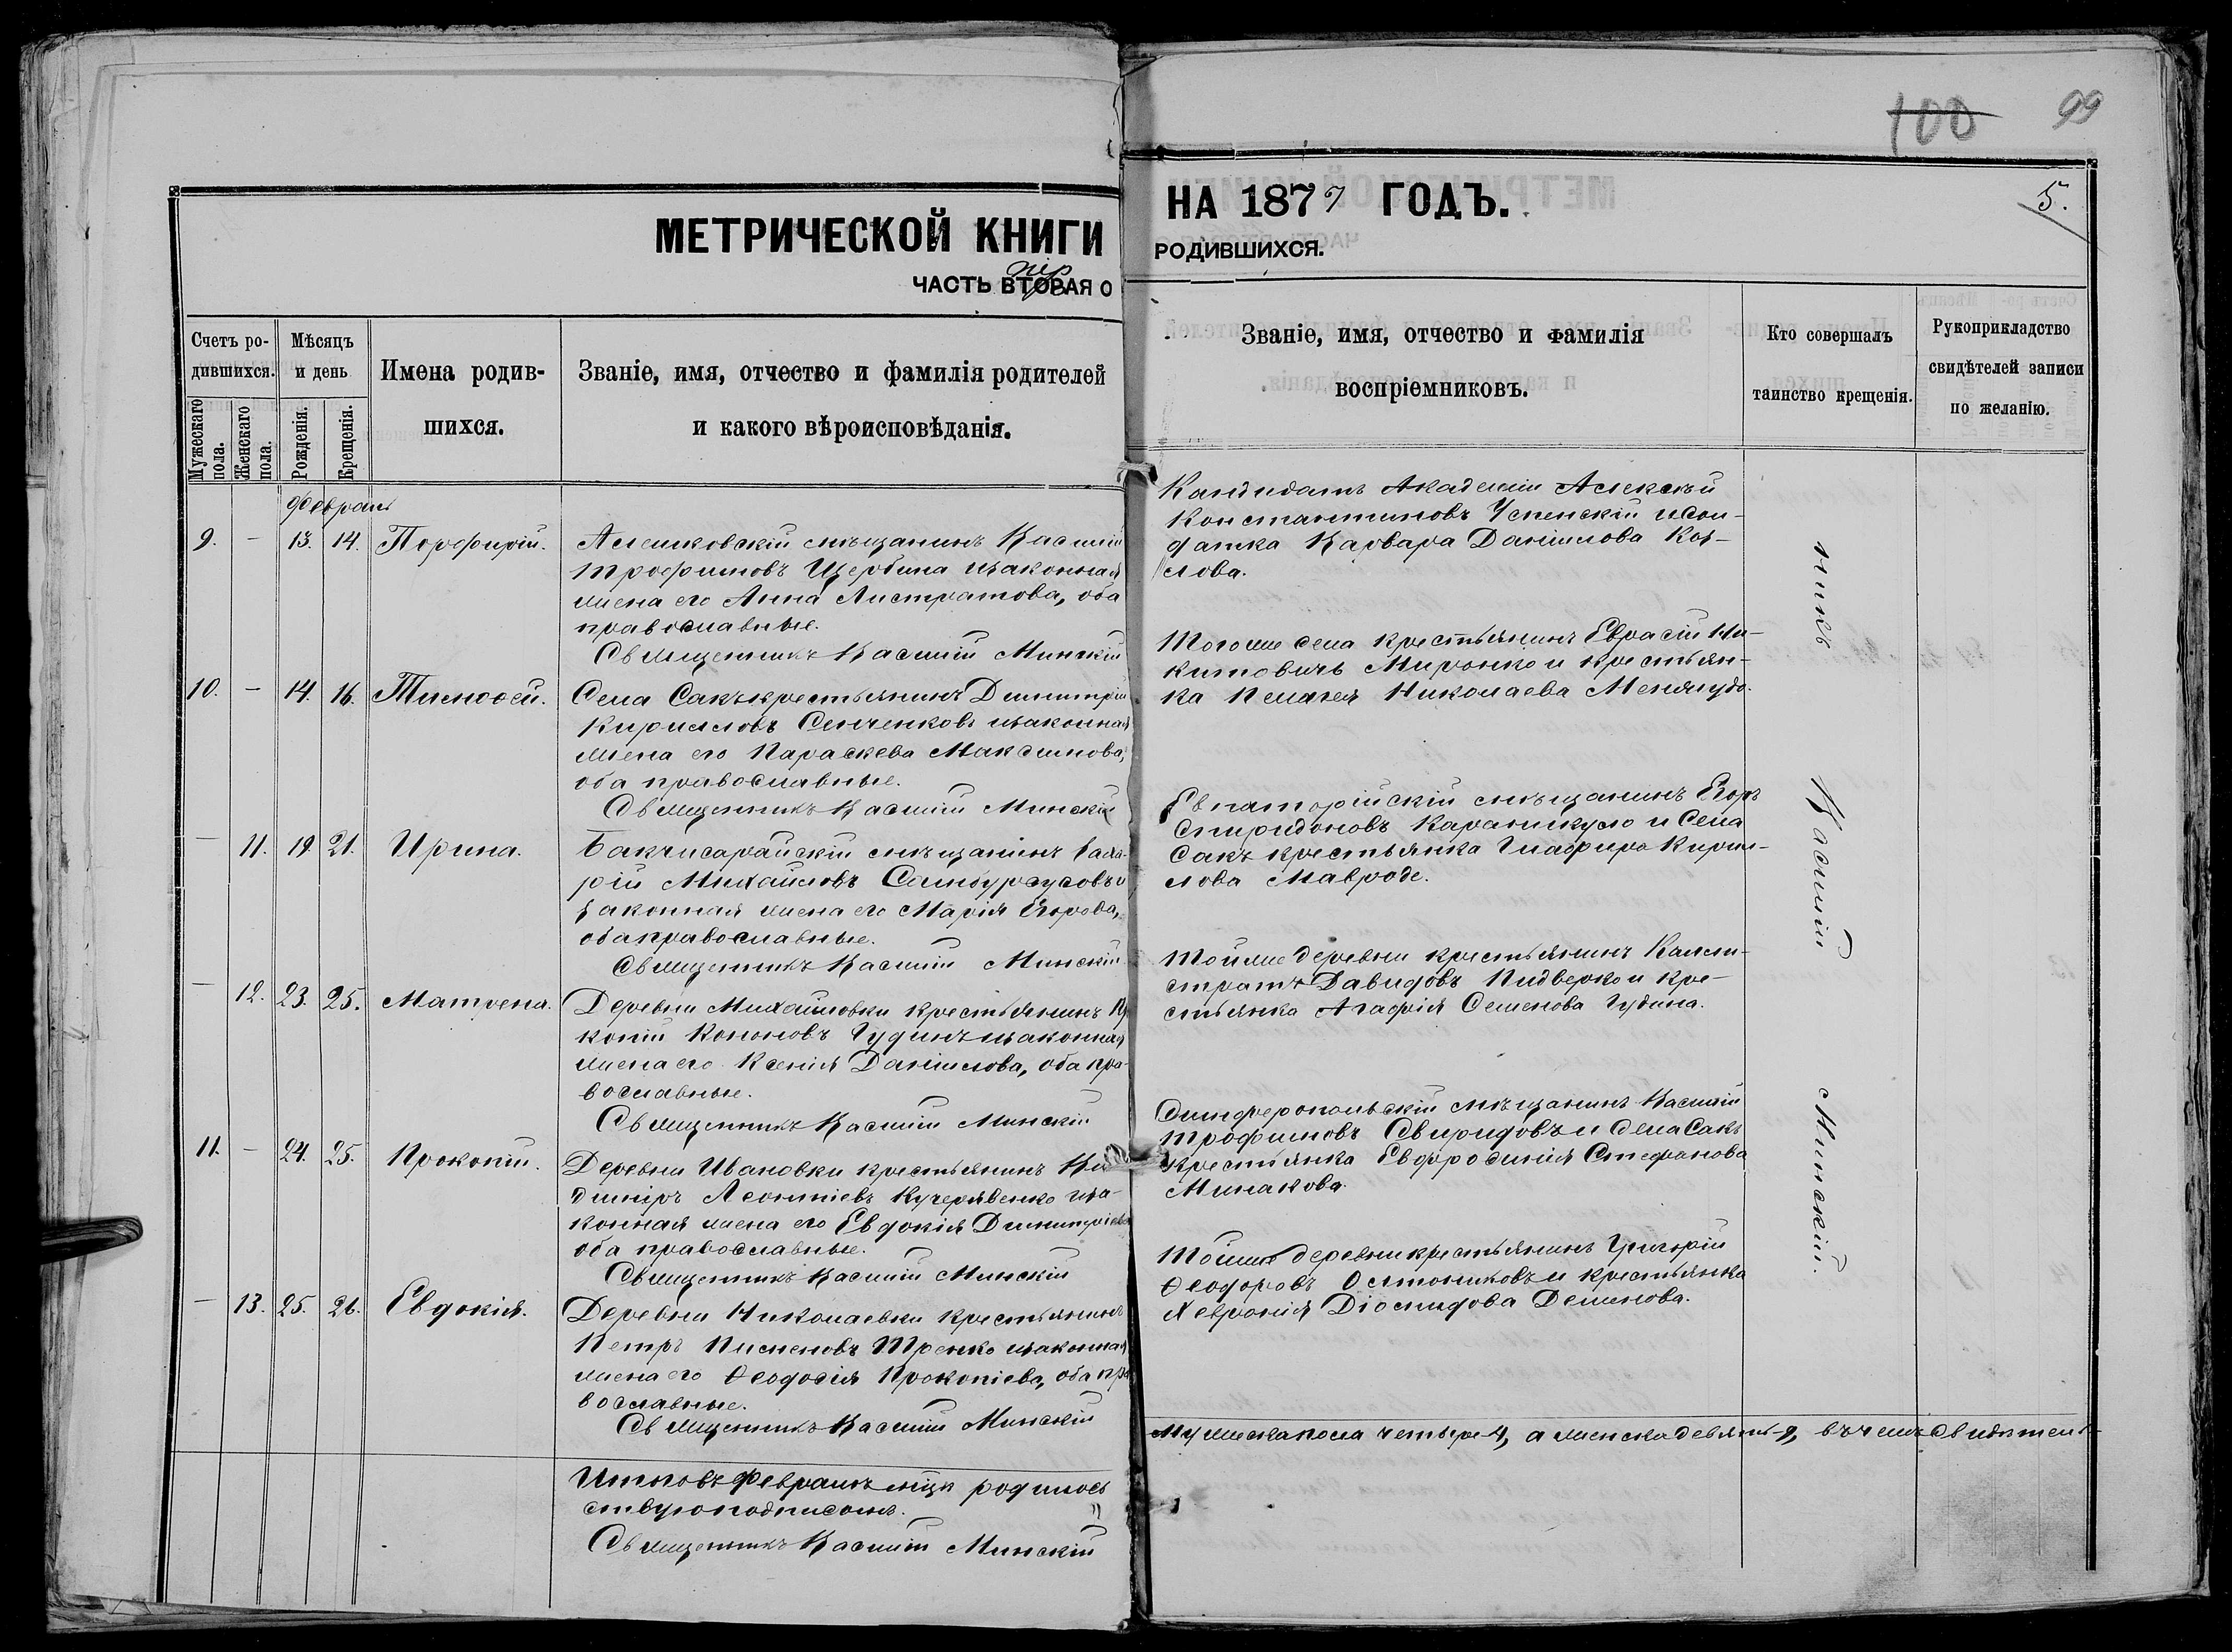 100 99
МЕТРИЧЕСКОЙ КНИГИ НА 1877 ГОДЪ. 5.
ЧАСТЬ ВТОРАЯ О РОДИВШИХСЯ.
пер
Счетъ ро-
дившихся.
Мужескаго пола.
Женскаго пола.
Мѣсяцъ
и день
Рожденія.
Крещенія.
Имена родив-
шихся.
Званіе, имя, отчество и фамилія родителей
и какого вѣроисповѣданія.
Званіе, имя, отчество и фамилія
воспріемниковъ.
Кто совершалъ
таинство крещенія.
Рукоприкладство
свидѣтелей записи
по желанію.
Февраль
9. – 13. 14. Порфирій.
Алешковскій мѣщанинъ Василій
Трофимовъ Щербина изаконная
жена его Анна Листратова, оба
православные.
Священникъ Василій Минскій
Кандидатъ Академіи Алексѣй
Константиновъ Успенскій исол-
датка Варвара Даніилова Коз-
лова.
10. – 14. 16. Тимоѳей.
Села Сакъ крестьянинъ Димитрій
Кирилловъ Сенченковъ изаконная
жена его Параскева Максимова,
оба православные.
Священникъ Василій Минскій
Тогоже села крестьянинъ Ки-
китовичъ Миронко и крестьян-
ка Пелагея Николаева
– 11. 19. 21. Ирина.
Бакчисарайскій мѣщанинъ
рій Михайловъ и
законная жена его Марія Егорова,
оба православные.
Священникъ Василій Минскій
Евпаторійскій мѣщанинъ Егоръ
Спиридоновъ и Села
Сакъ крестьянка Глафира Кирил-
лова Мавроде.
– 12. 23. 25. Матрена.
Деревни Михайловки крестьянинъ
копій Кононовъ Гудинъ изаконная
жена его Ксенія Даніилова, оба пра-
вославные.
Священникъ Василій Минскій
Тойже деревни крестьянинъ Калли-
стратъ Давидовъ Пидверко и кре-
стьянка Агафія Семенова Гудина.
11. – 24. 25. Прокопій.
Деревни Ивановки крестьянинъ Вла
диміръ Леонтіевъ Кучерявенко иза-
конная жена его Евдокія Димитріева
оба православные.
Священникъ Василій Минскій
Симферопольскій мѣщанинъ Василій
Трофимовъ Свиридовъ и села Сакъ
крестьянка Евфросинія Стефанова
Минакова.
– 13. 25. 26. Евдокія.
Деревни Николаевки крестьянинъ
Петръ Пименовъ изаконная
жена его Ѳеодосія Прокопіева, оба пра
вославные.
Священникъ Василій Минскій
Тойже деревни крестьянинъ Григорій
Ѳеодоровъ и крестьянка
Хеврокія Діомидова Деминова.
никъ Василій Минскій.
Итого въ Февралѣ мцѣ родилось мужеска пола четыре 4, а женска девять 9, въ чемъ свидѣтель-
ствую подписомъ.
Священникъ Василій Минскій